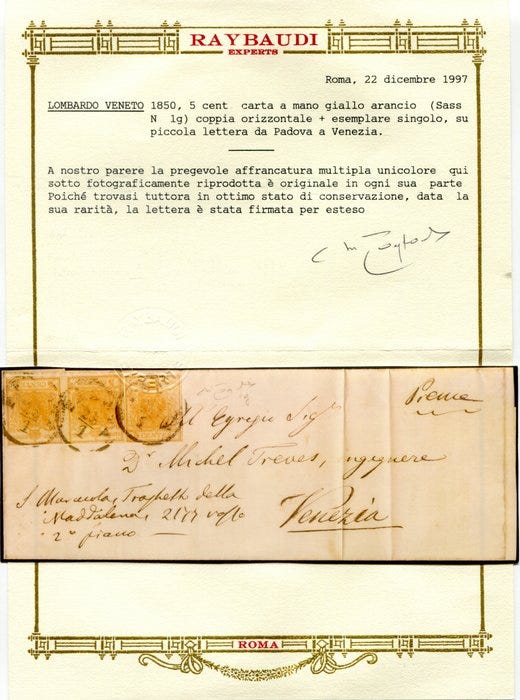 RAYBAUDI
EXPERTS
Roma, 22 dicembre 1997
LOMBARDO VENETO 1850, 5 cent carta a mano giallo arancio (Sass
N 1g) coppia orizzontale + esemplare singolo, su
piccola lettera da Padova a Venezia.
A nostro parere la pregevole affrancatura multipla unicolore qui
sotto fotograficamente riprodotta è originale in ogni sua parte
Poiché trovasi tuttora in ottimo stato di conservazione, data la
sua rarità, la lettera è stata firmata per esteso
Egregio Sigr
Dr Michel Treves, ingegnere
Venezia
S Marcuola, Traghetto della
Maddalena, 2177
2o piano
ROMA